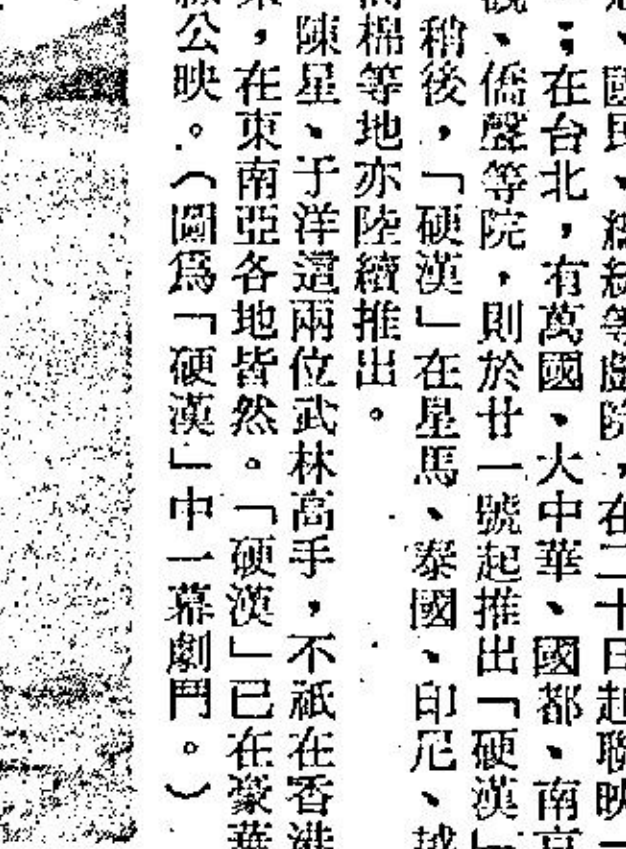 國民、總統等戲院，在二十日起聯映
；在台北，有萬國、大中華、國都、南京
、僑聲等院，則於廿一號起推出「硬漢」
稍後，「硬漢」在星馬、泰國、印尼、越
棉等地亦陸續推出。
陳星、于洋這兩位武林高手，不祇在香港
，在東南亞各地皆然。「硬漢」已在豪華
公映。（圖為「硬漢」中一幕劇鬥。）